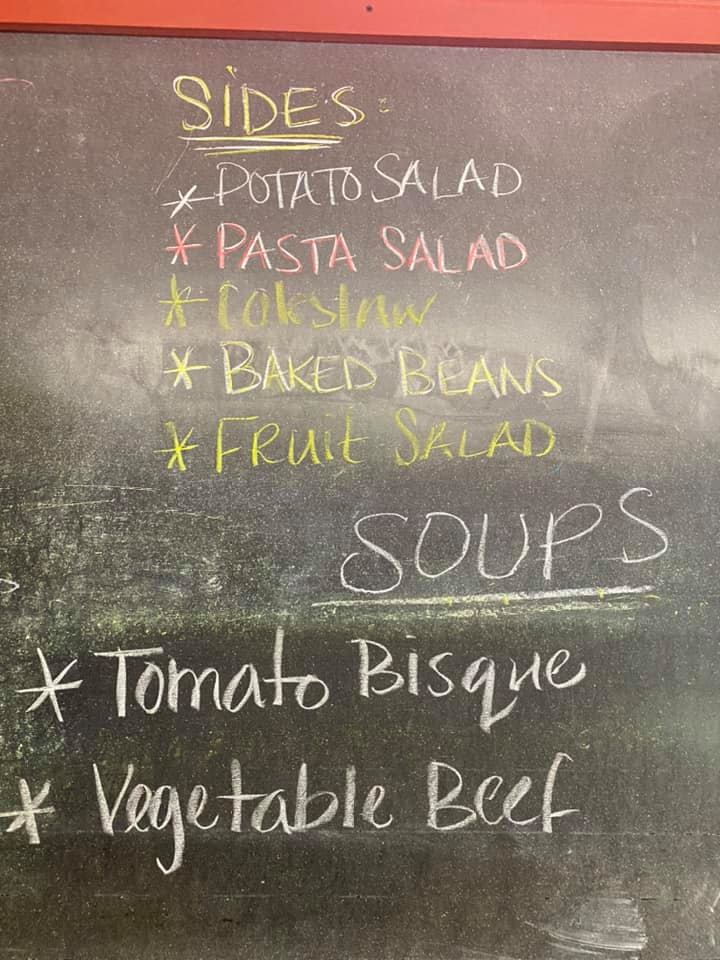 SIDES:
* POTATO SALAD
* PASTA SALAD
* Coleslaw
* BAKED BEANS
* FRUIT SALAD
SOUPS
* Tomato Bisque
* Vegetable Beef